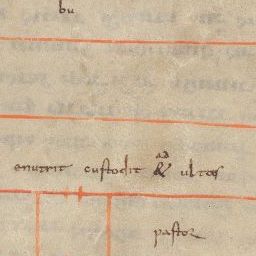 bu
enutrit custodit & ad ultos
pastor